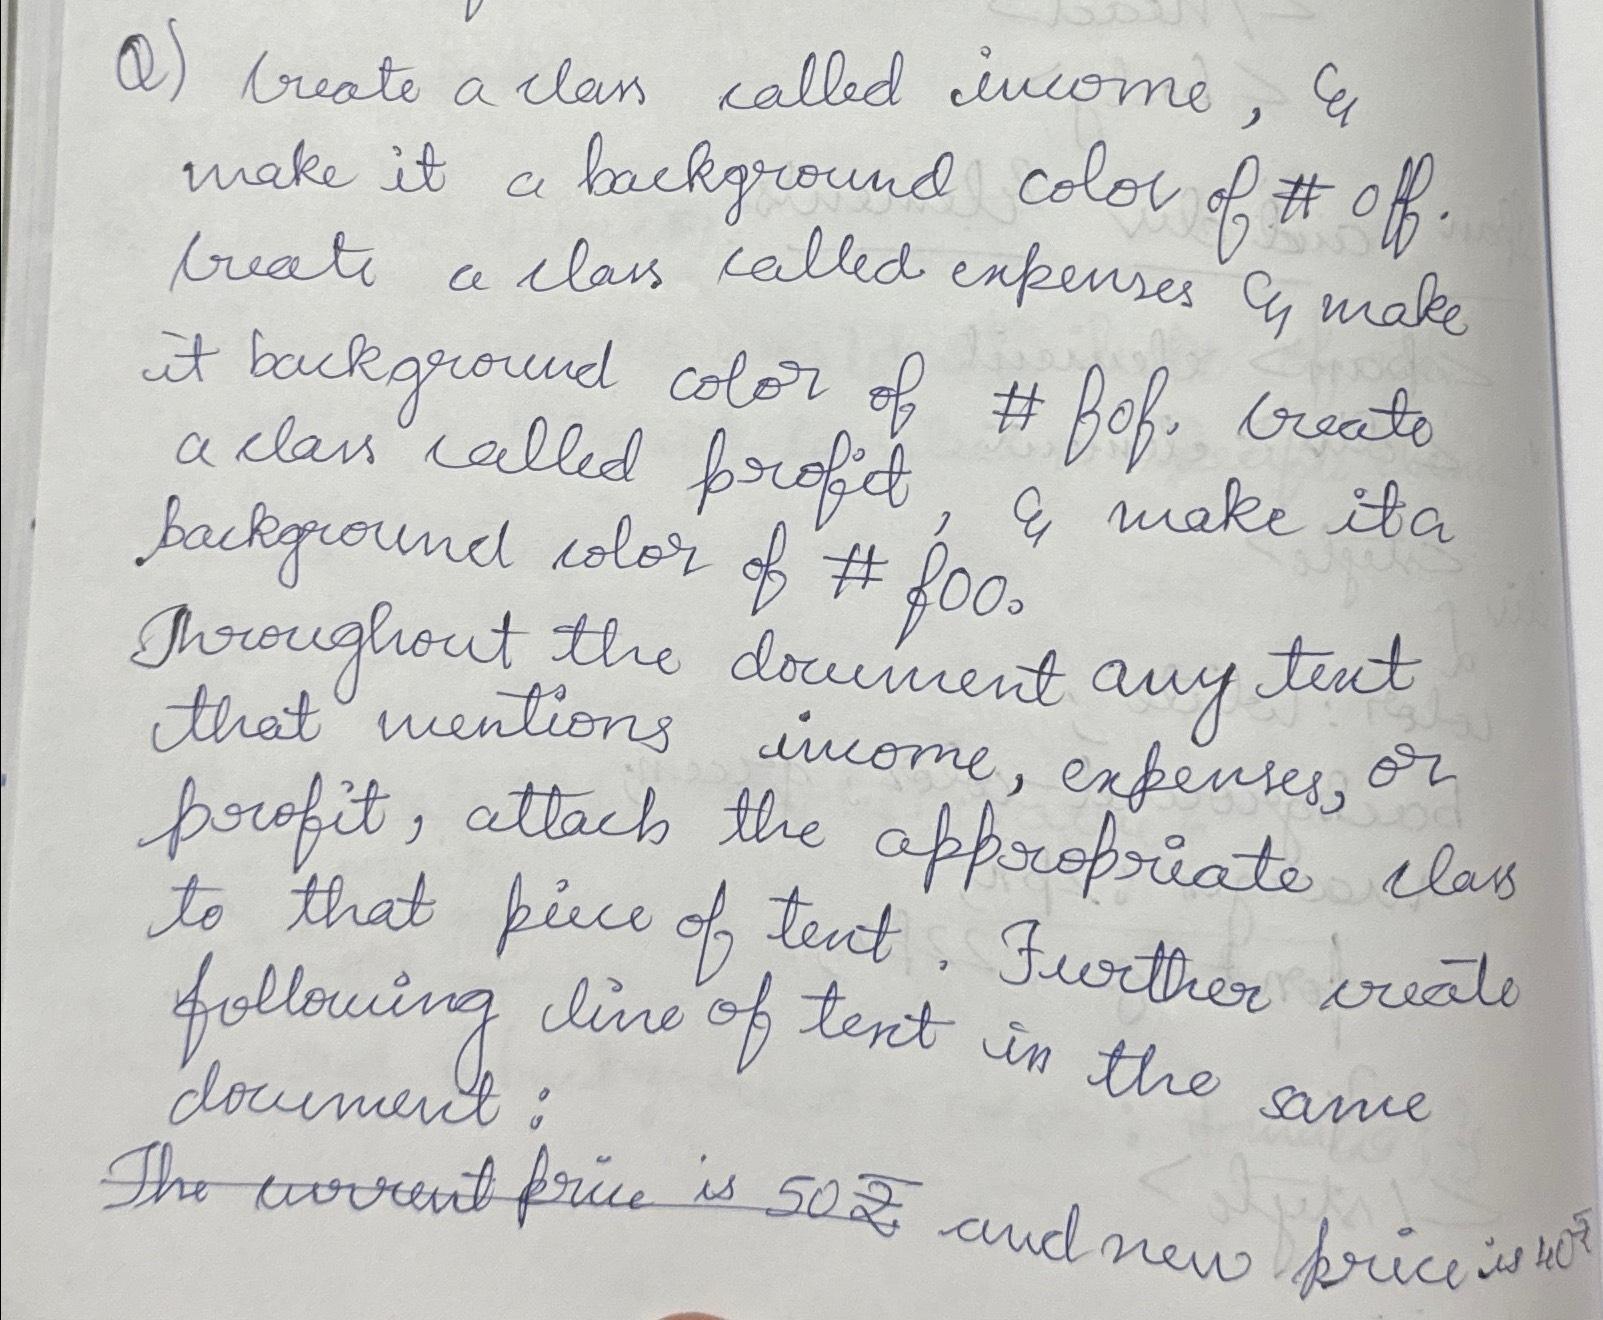 Q) Create a class called income, &
make it a background color of # off.
Create a class called expenses & make
it background color of # fof. Create
a class called profit, & make it a
background color of # f00.
Throughout the document any text
that mentions income, expenses, or
profit, attach the appropriate class
to that piece of text. Further create
following line of text in the same
document:
The current price is 50₹ and new price is 40₹